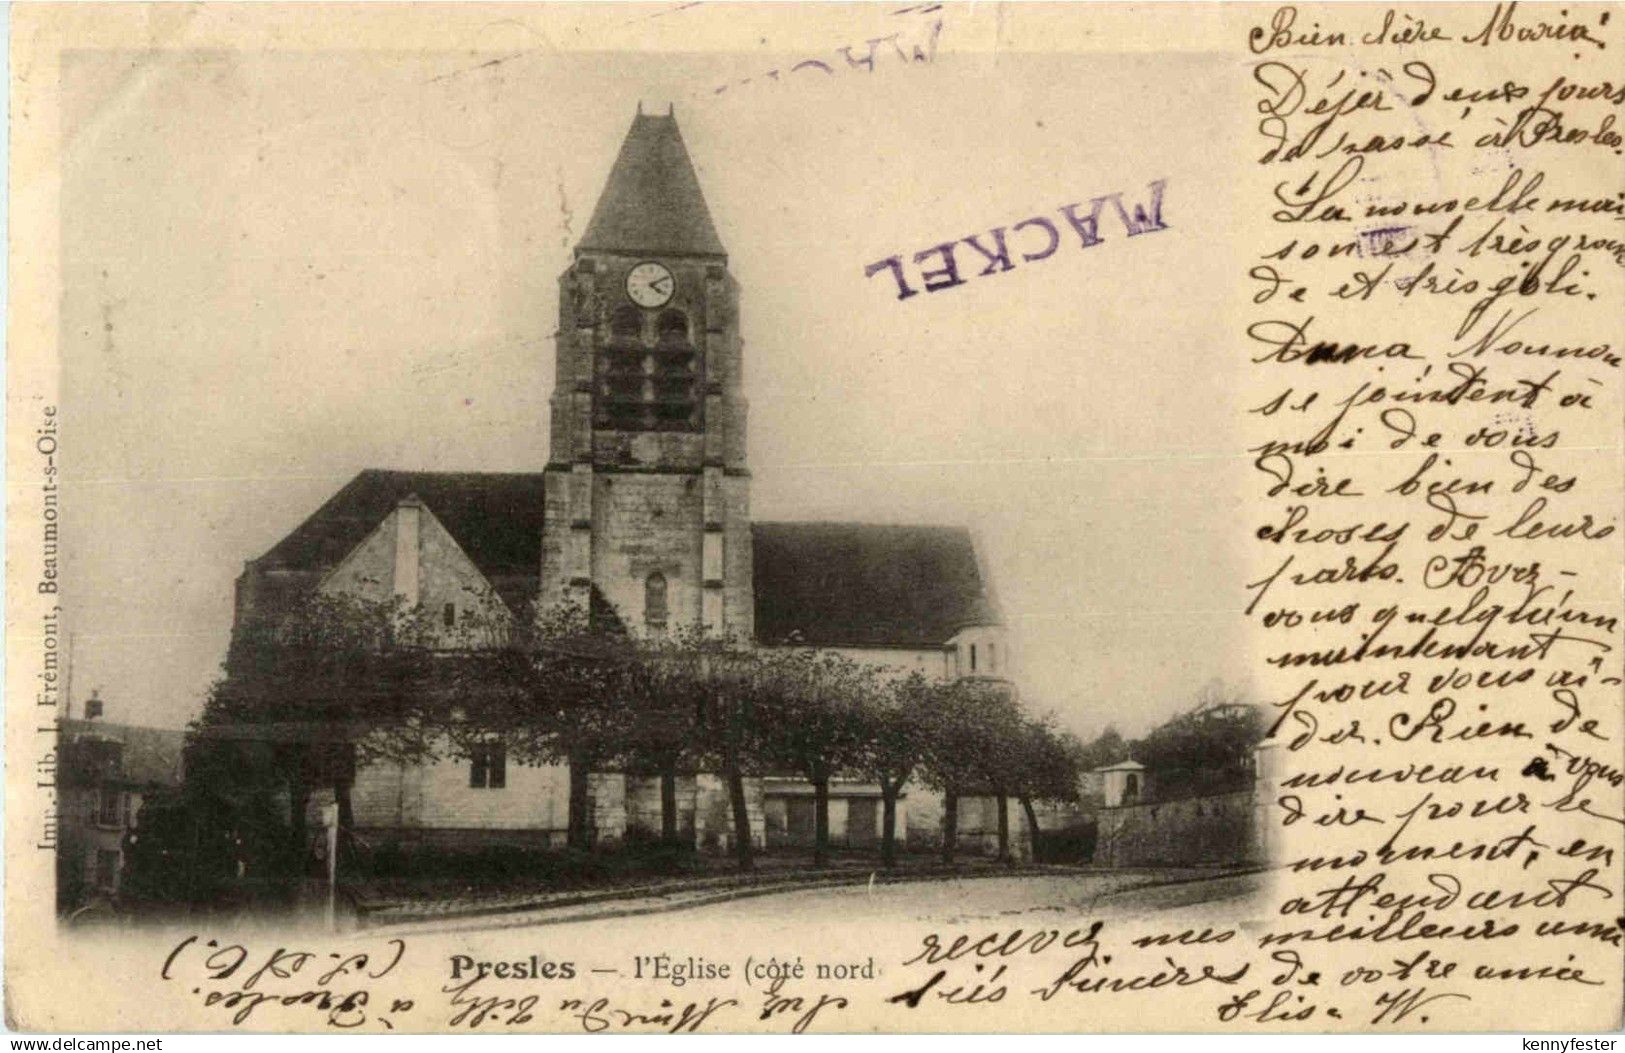 MACKEL
MACKEL
Bien chère Maria!
Déjà deux jours
de passé à Presles.
La nouvelle mai-
son est très gran
de et très joli.
Anna, Nounou
se joindent à
moi de vous
dire bien des
choses de leurs
parts. Avez-
vous quelqu'un
maintenant
pour vous ai-
der. Rien de
nouveau à vous
dire pour le
moment, en
attendant
recevez mes meilleurs ami
tiés sincères de votre amie
Elisa W.
Imp.-Lib. J. Frémont, Beaumont-s-Oise
Presles — l'Église (côté nord
chez
du
à Presles.
(S. &. O.)
delcampe.net
kennyfester